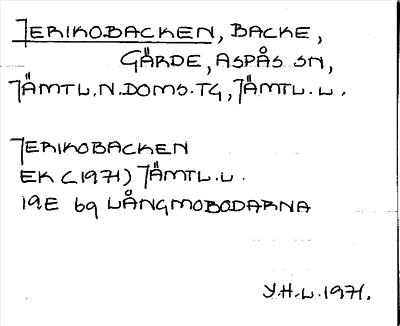 JERIKOBACKEN, BACKE,
GÄRDE, ASPÅS SN,
JÄMTL.N.DOMS.TG, JÄMTL.L.
JERIKOBACKEN
EK (1971) JÄMTL.L.
19E 6g LÅNGMOBODARNA
Y.H.L. 1971.